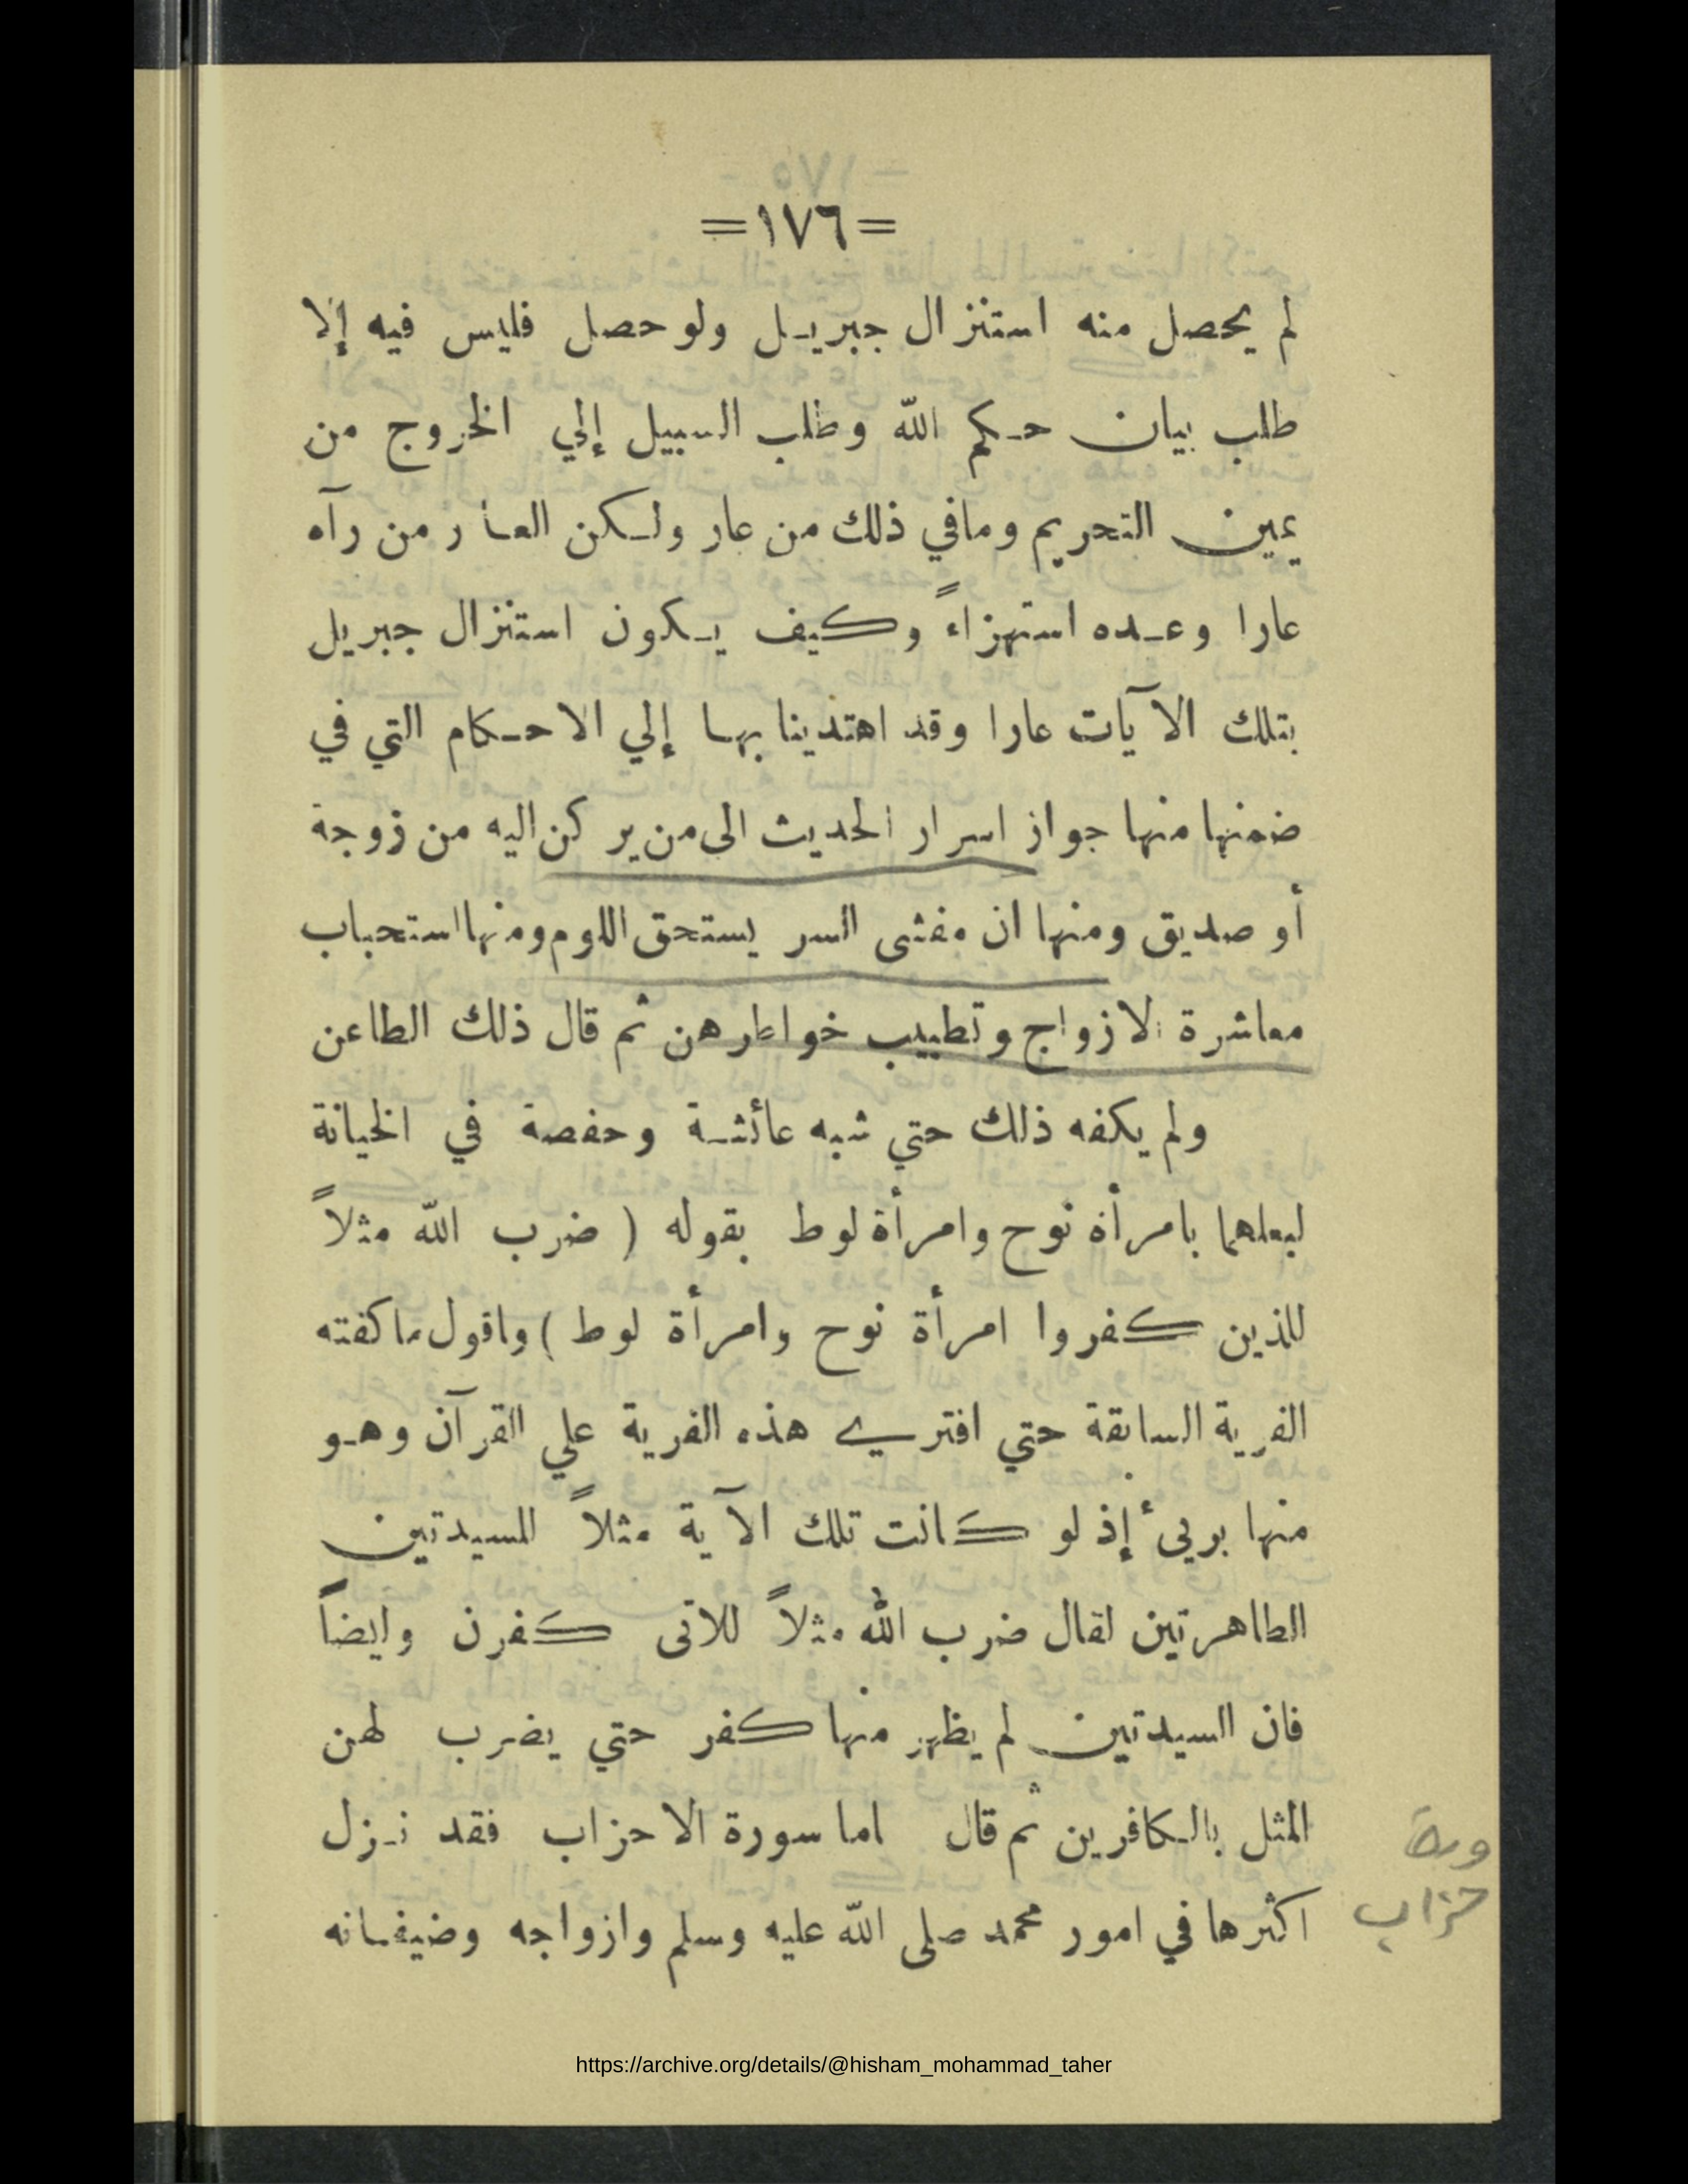 =١٧٦=
لم يحصل منه استنزال جبريل ولو حصل فليس فيه إلا
طلب بيان حكم الله وطلب السبيل إلي الخروج من
يمين التحريم ومافي ذلك من عار ولكن العار من رآه
عارا وعده استهزاءً وكيف يكون استنزال جبريل
بتلك الآيات عارا وقد اهتدينا بها إلي الاحكام التي في
ضمنها منها جواز اسرار الحديث الى من يركن اليه من زوجة
أو صديق ومنها ان مفشى السر يستحق اللوم ومنها استحباب
معاشرة الازواج وتطييب خواطرهن ثم قال ذلك الطاعن
ولم يكفه ذلك حتي شبه عائشة وحفصة في الخيانة
لبعلهما بامرأة نوح وامرأة لوط بقوله ( ضرب الله مثلاً
للذين كفروا امرأة نوح وامرأة لوط ) واقول ما كفته
الفرية السابقة حتي افتري هذه الفرية علي القرآن وهو
منها بريئ إذ لو كانت تلك الآية مثلاً للسيدتين
الطاهرتين لقال ضرب الله مثلاً للاتى كفرن وايضاً
فان السيدتين لم يظهر منها كفر حتي يضرب لهن
المثل بالكافرين ثم قال اما سورة الاحزاب فقد نزل
اكثرها في امور محمد صلى الله عليه وسلم وازواجه وضيفانه
ورة
حزاب
https://archive.org/details/@hisham_mohammad_taher